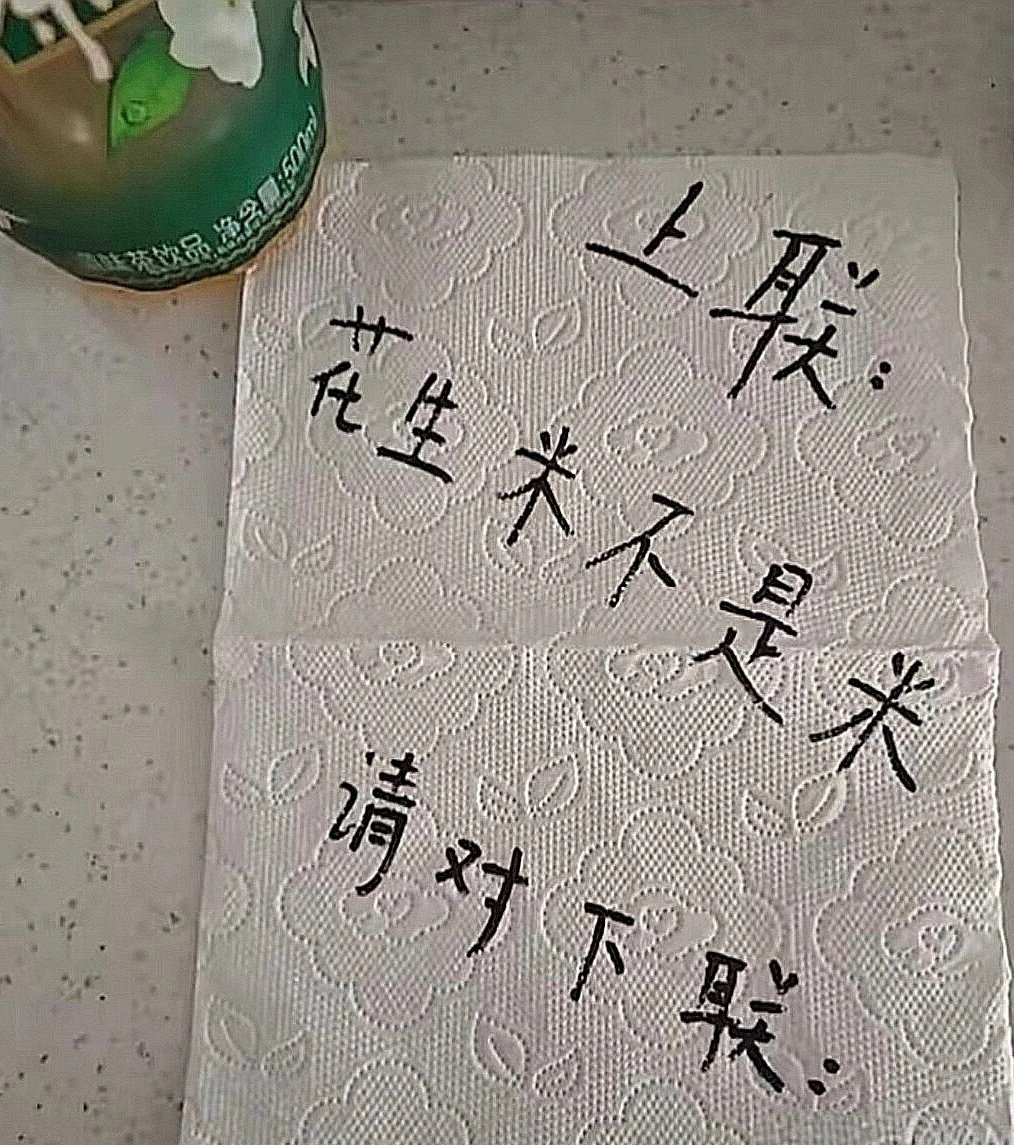 味茶饮品 净含量:500ml
上联:
花生米不是米
请对下联: